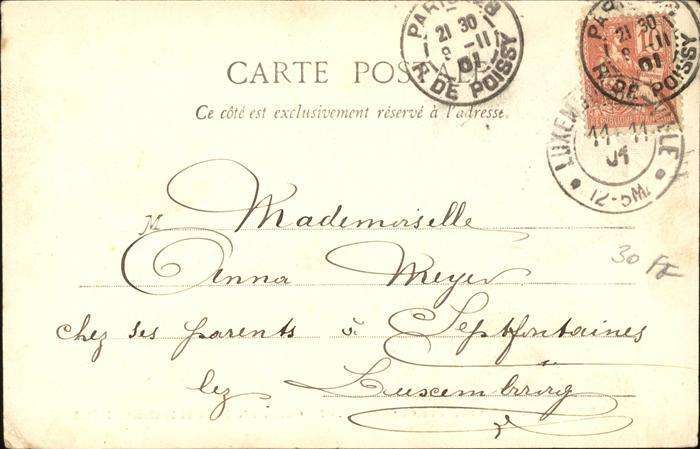 PARIS 28
21 30
8 -11
01
R. DE POISSY
PARIS
21 30
8 -11
01
R. DE POISSY
10
REPUBLIQUE FRANÇAISE
CARTE POSTALE
Ce côté est exclusivement réservé à l'adresse
LUXEMBOURG VILLE
11 11
01
12-5M.
M Mademoiselle
Anna Meyer
30 FF
chez ses parents à Septfontaines
lez Luxembourg